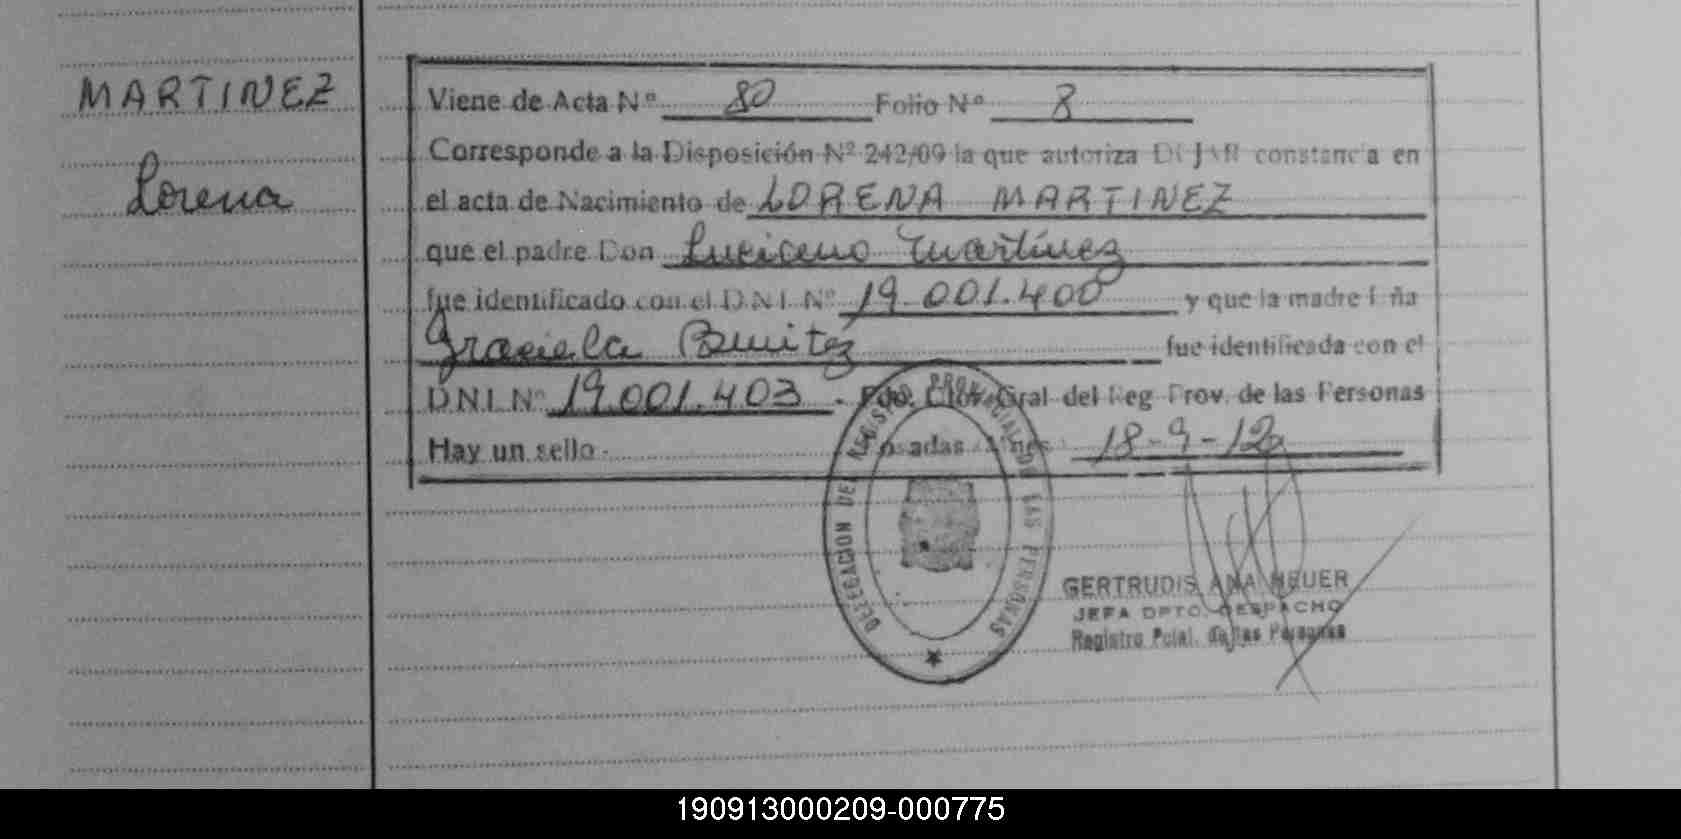 MARTINEZ
Lorena
Viene de Acta Nº 80 Folio Nº 8
Corresponde a la Disposición Nº 242/09 la que autoriza DEJAR constancia en
el acta de Nacimiento de LORENA MARTINEZ
que el padre Don Luciano Martínez
fue identificado con el D.N.I. Nº 19.001.400 y que la madre Doña
Graciela Benitez fue identificada con el
D.N.I. Nº 19.001.403 - Fdo. Gral del Reg Prov. de las Personas
Hay un sello - Posadas Mnes 18-9-12
DELEGACION DEL REGISTRO PROVINCIAL DE LAS PERSONAS
GERTRUDIS ANA HEUER
JEFA DPTO. DESPACHO
Registro Pcial. de las Personas
190913000209-000775